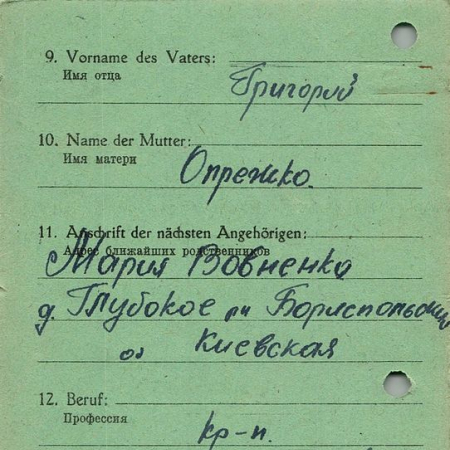 9. Vorname des Vaters:
Имя отца
Григорий
10. Name der Mutter:
Имя матери
Опрешко.
11. Anschrift der nächsten Angehörigen:
Адрес ближайших родственников
Мария Вовненко
д. Глубокое рн Бориспольский
Киевская
12. Beruf:
Профессия
кр-н.